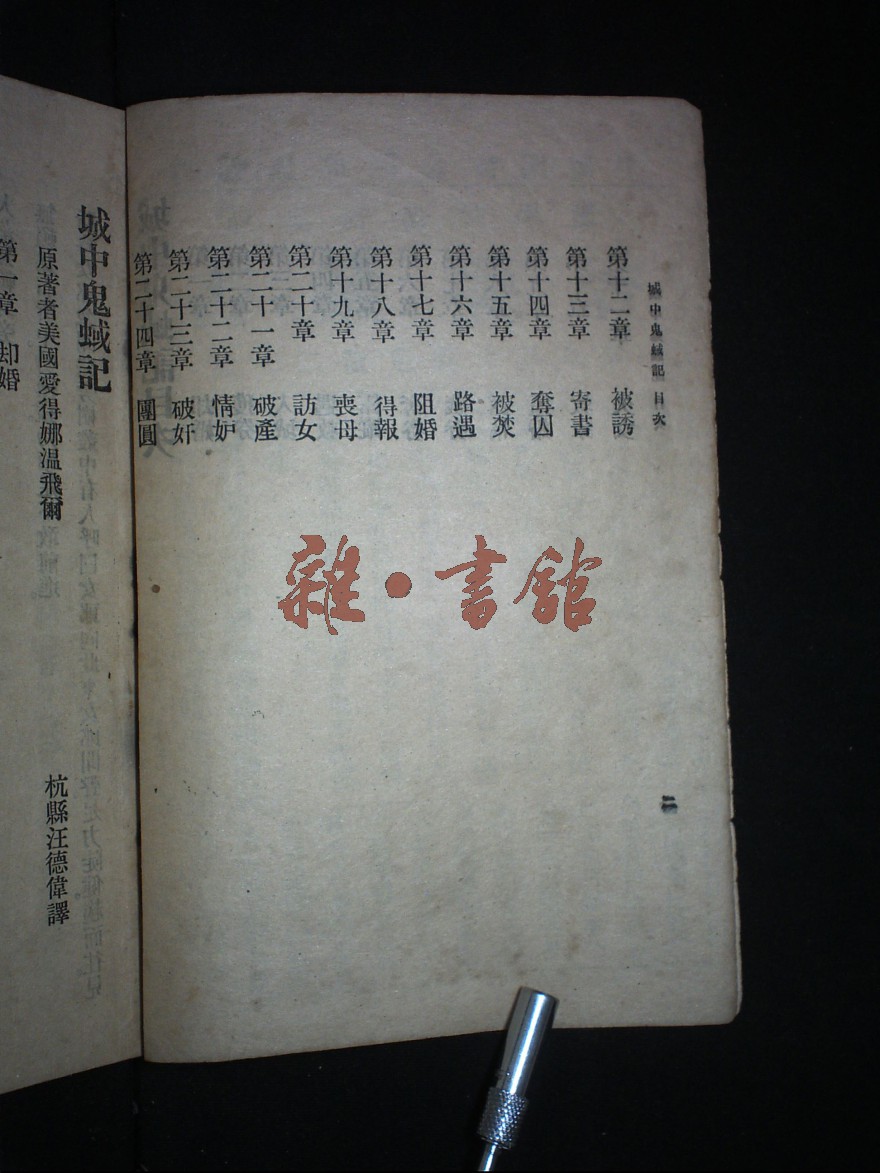 城中鬼蜮記 目次
第十二章 被誘
第十三章 寄書
第十四章 奪囚
第十五章 被焚
第十六章 路遇
第十七章 阻婚
第十八章 得報
第十九章 喪母
第二十章 訪女
第二十一章 破產
第二十二章 情妒
第二十三章 破奸
第二十四章 團圓
二
雜·書館
城中鬼蜮記
原著者美國愛得娜溫飛爾
杭縣汪德偉譯
第一章 却婚